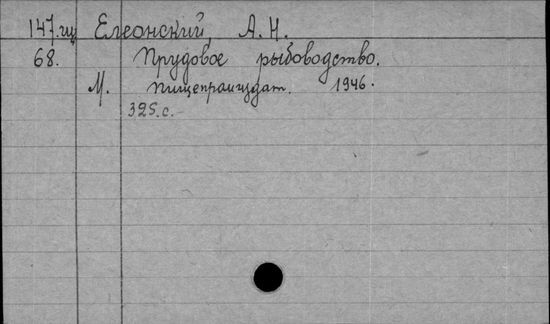 147.гщ Елеонский, А. Н.
68. Прудовое рыбоводство.
М. Пищепромиздат. 1946.
325.с.